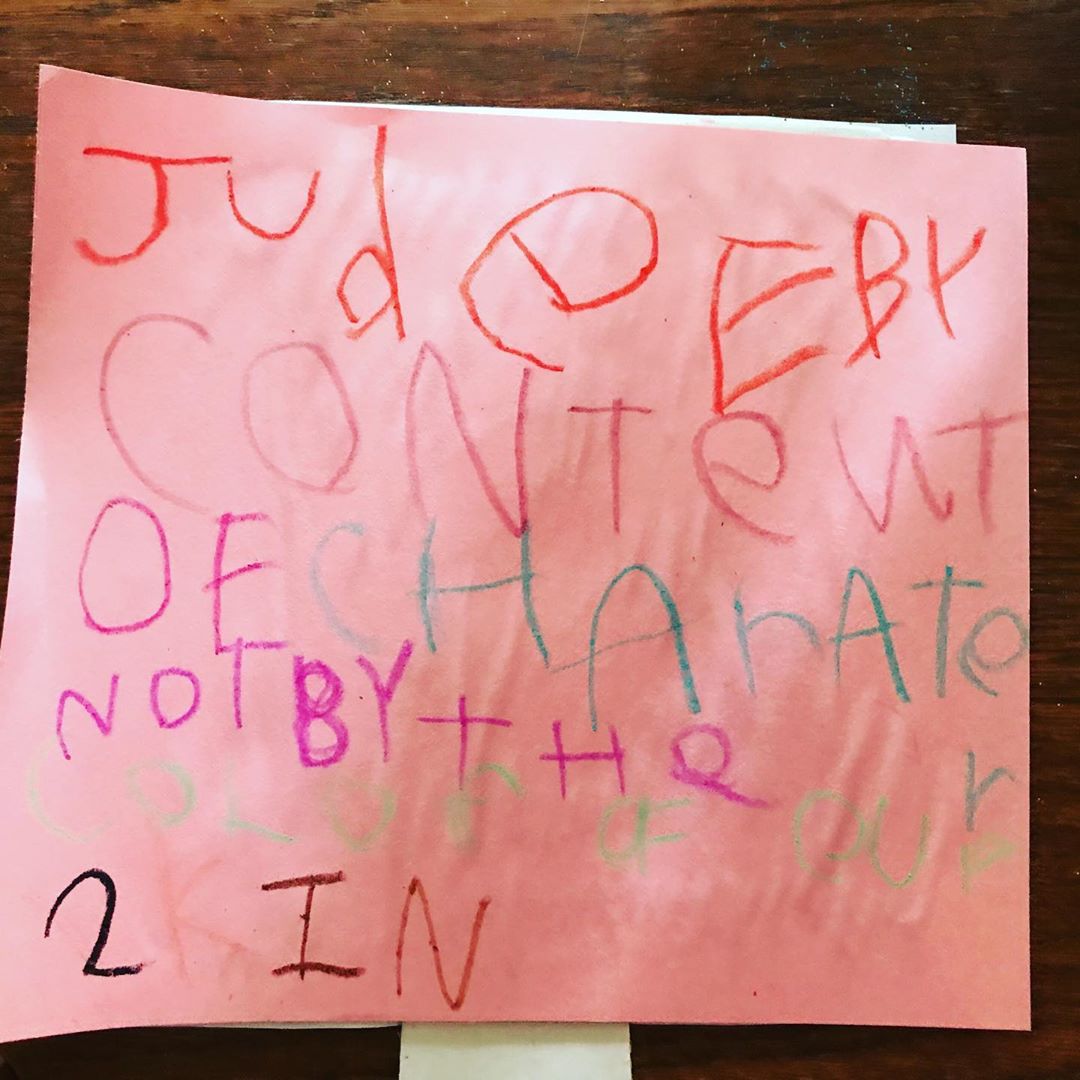 JUdGE BY
CONTeNT
OF CHArATer
NOT BY THe
COLOr OF OUr
SKIN